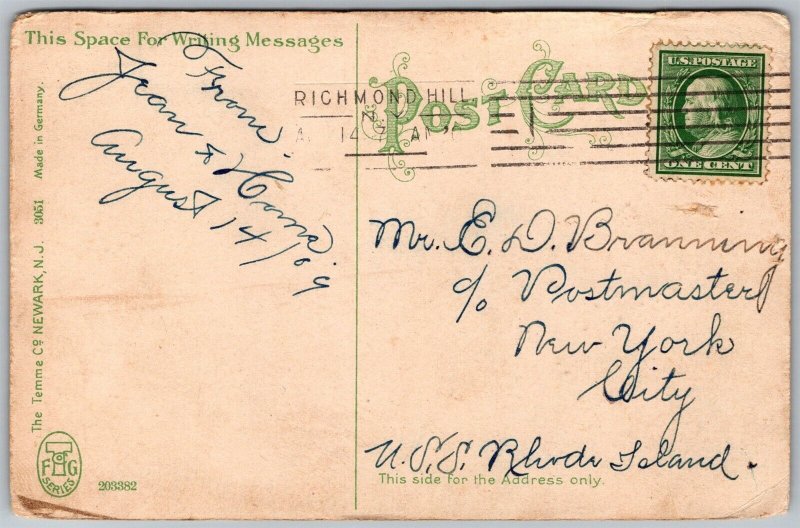 This Space For Writing Messages
From
Jean & Hans
August 14/09
POST CARD
RICHMOND HILL
N.Y.
14 7 A
U.S. POSTAGE
ONE CENT
Mr. E. D. Branning
c/o Postmaster
New York
City
U.S.S. Rhode Island.
This side for the Address only.
The Temme Co NEWARK, N.J. 3051 Made in Germany.
F T G
SERIES
203382